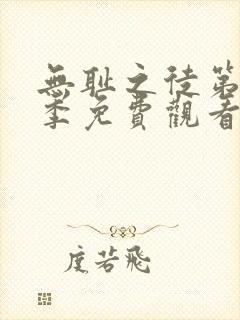 無耻之徒第
季免費觀看
度若飛